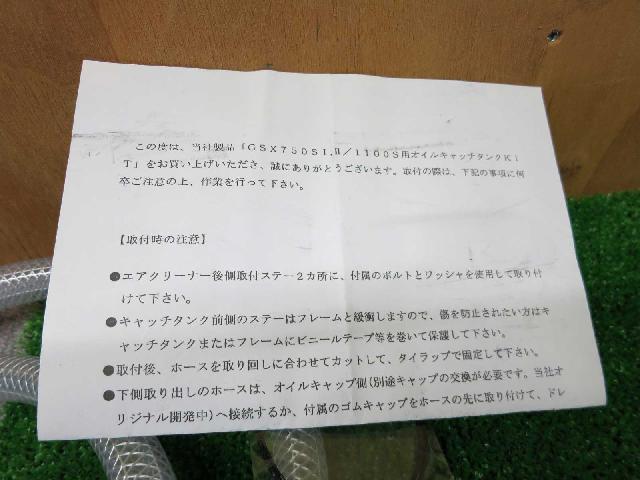 この度は、当社製品「GSX750SI,II/1100S用オイルキャッチタンクKI
T」をお買い上げいただき、誠にありがとうございます。取付の際は、下記の事項に何
卒ご注意の上、作業を行って下さい。
【取付時の注意】
●エアクリーナー後側取付ステー2カ所に、付属のボルトとワッシャを使用して取り付
けて下さい。
●キャッチタンク前側のステーはフレームと緩衝しますので、傷を防止されたい方はキ
ャッチタンクまたはフレームにビニールテープ等を巻いて保護して下さい。
●取付後、ホースを取り回しに合わせてカットして、タイラップで固定して下さい。
●下側取り出しのホースは、オイルキャップ側(別途キャップの交換が必要です。当社オ
リジナル開発中)へ接続するか、付属のゴムキャップをホースの先に取り付けて、ドレ